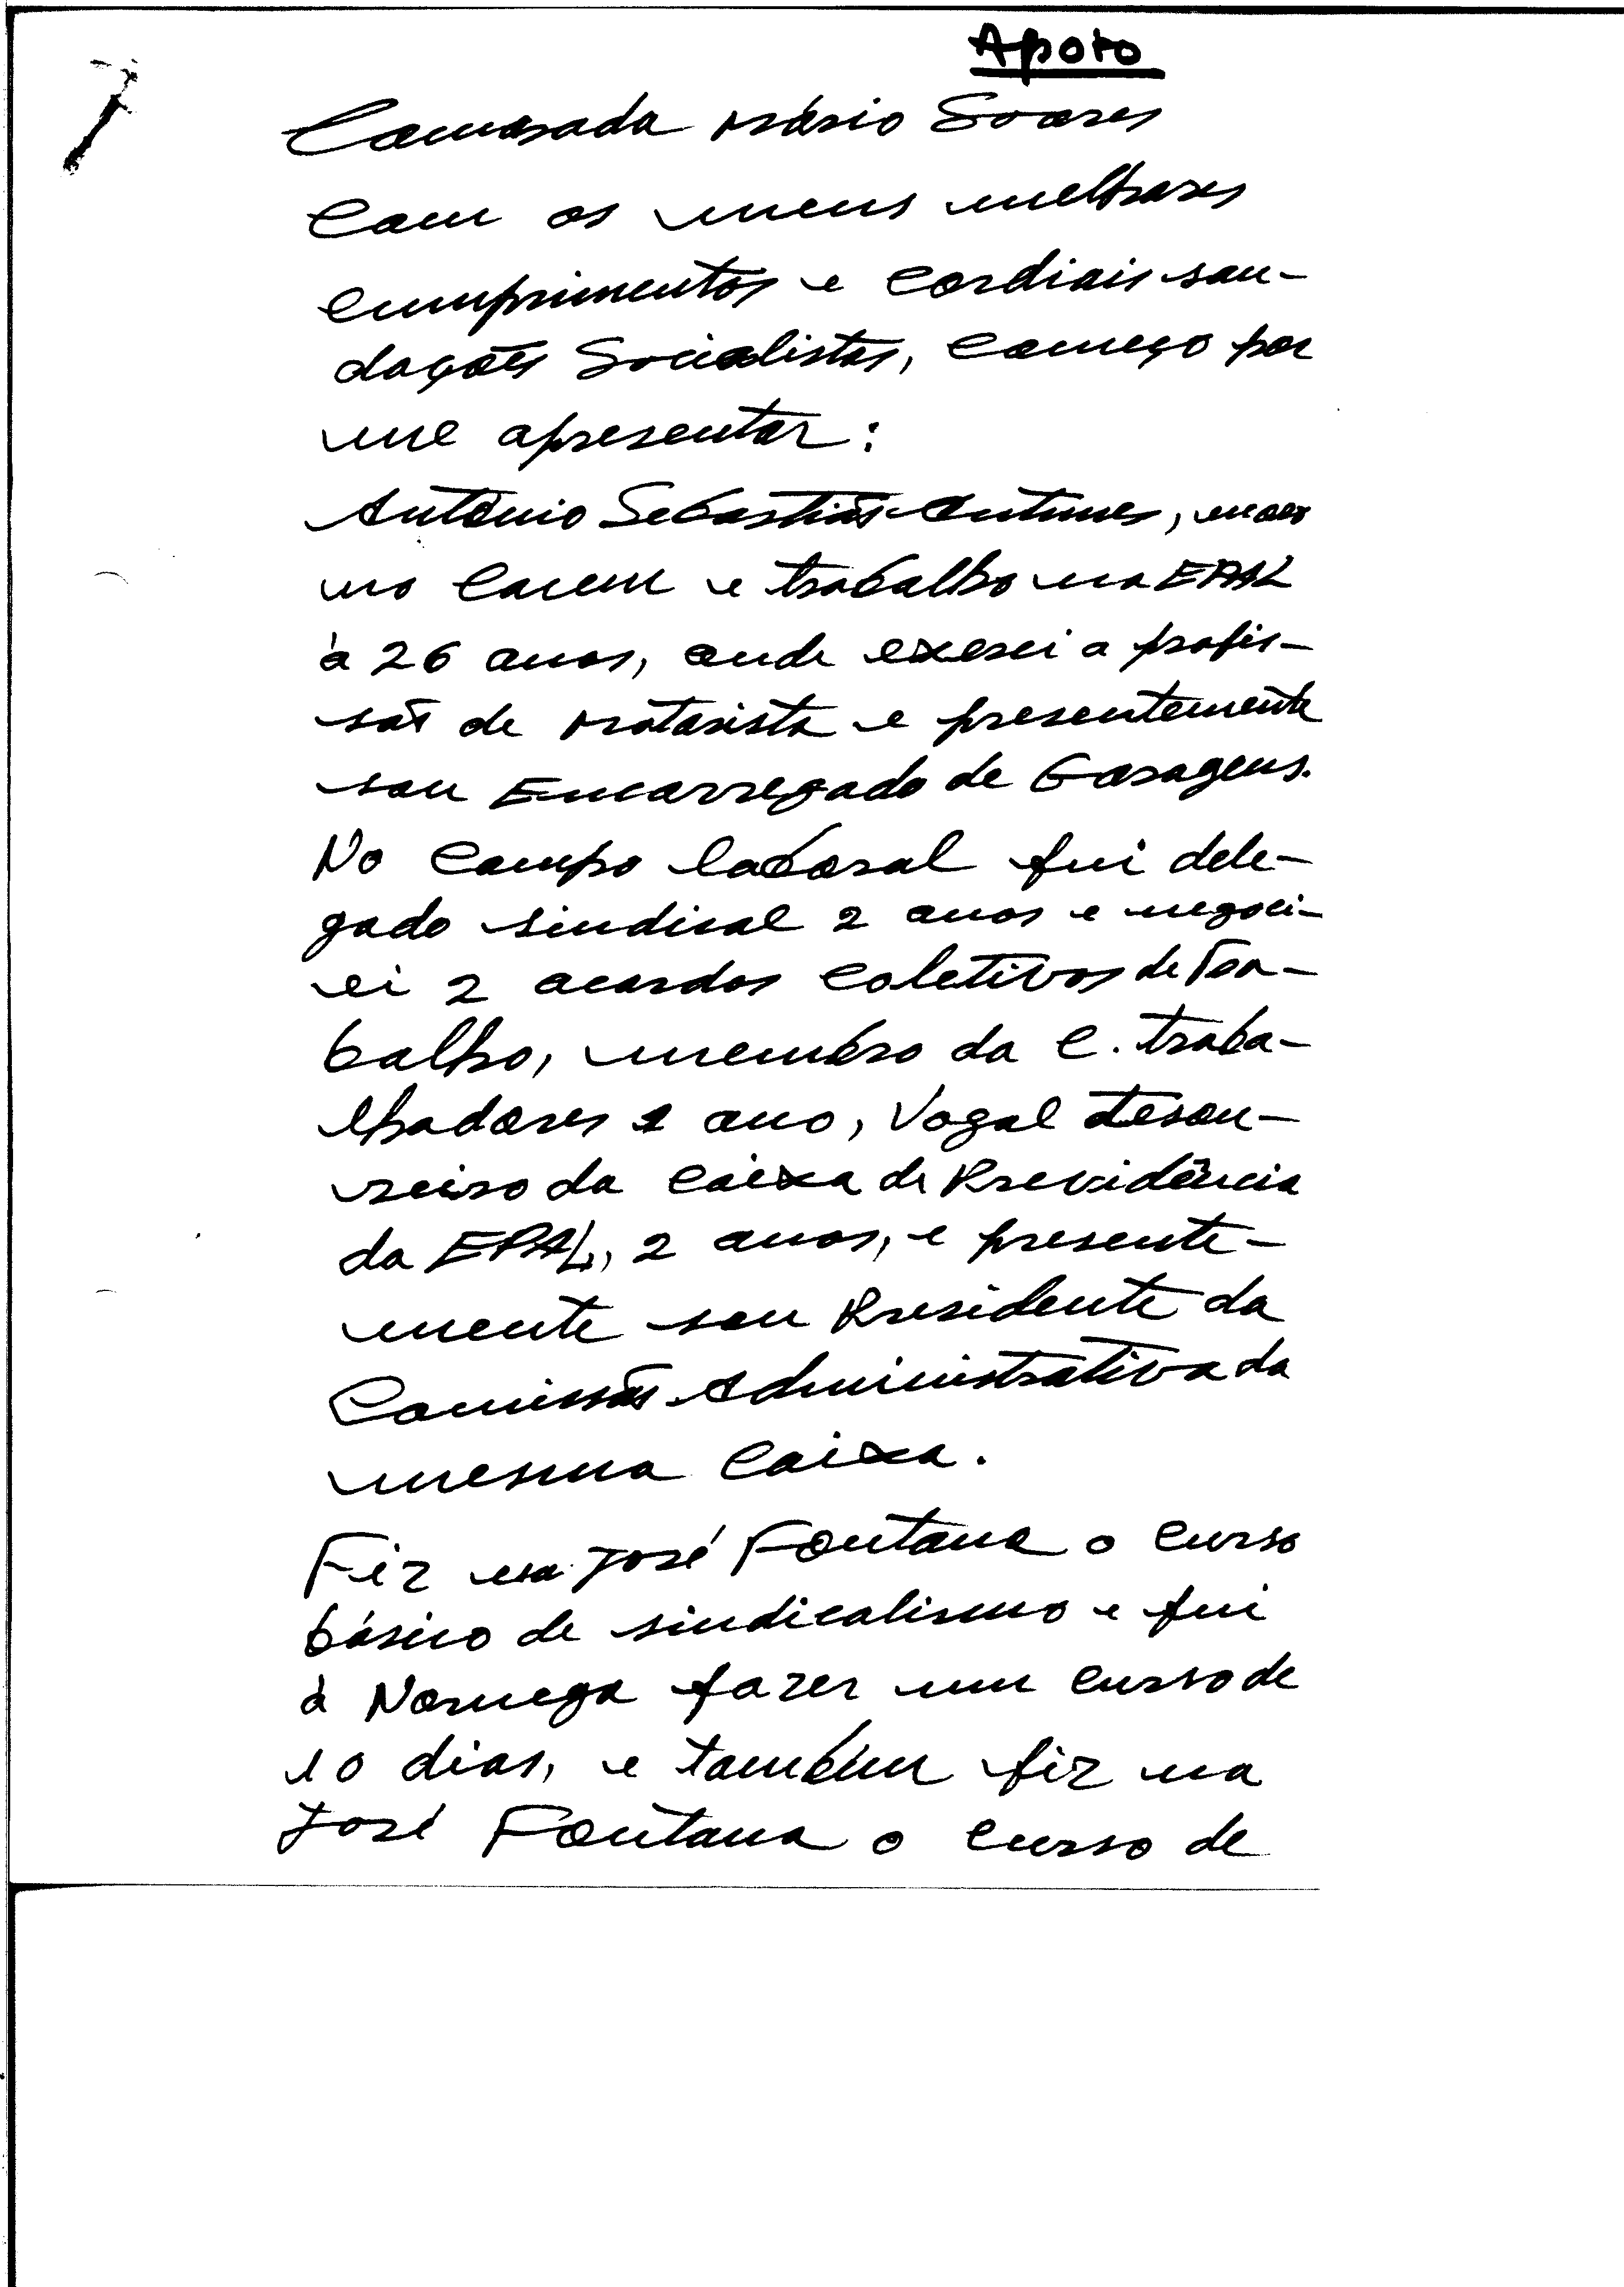 Apoio
Camarada Mário Soares
Com os meus melhores
cumprimentos e cordiais sau-
dações Socialistas, começo por
me apresentar:
António Sebastião Antunes, moro
no Cacem e trabalho na EPAL
à 26 anos, onde exerci a profis-
são de Motorista e presentemente
sou Encarregado de Garagens.
No Campo laboral fui dele-
gado sindical 2 anos e negoci-
ei 2 acordos coletivos de Tra-
balho, membro da C. traba-
lhadores 1 ano, Vogal tesou-
reiro da Caixa de Previdência
da EPAL, 2 anos, e presente-
mente sou Presidente da
Comissão Administrativa da
mesma Caixa.
Fiz na José Fontana o curso
básico de sindicalismo e fui
à Noruega fazer um curso de
10 dias, e também fiz na
José Fontana o curso de